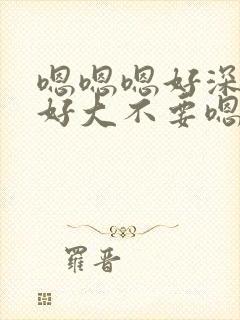 嗯嗯嗯好深
好大不要嗯
羅晋